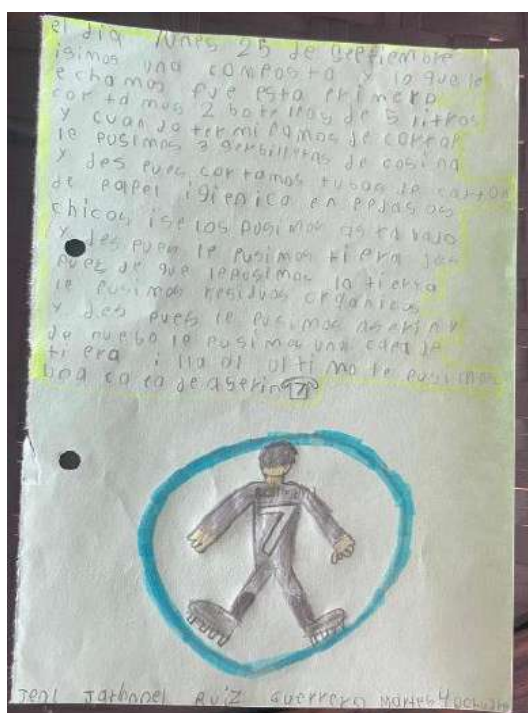 el dia lunes 25 de septiembre
isimos una composta y lo que le
echamos fue esta primero
cortamos 2 botellas de 5 litros
y cuando terminamos de cortar
le pusimos 3 serbilletas de cosina
y des pues cortamos tubos de carton
de papel igienico en pedasos
chicos i se los pusimos asta bajo
y des pues le pusimos tiera des
pues de que le pusimos la tierra
le pusimos residuos organicos
y des pues le pusimos aserin y
de nuebo le pusimos una capa de
tiera i lla al ultimo le pusimos
una capa de aserin 7
7
Jathnael Ruiz Guerrero martes 4 octubre